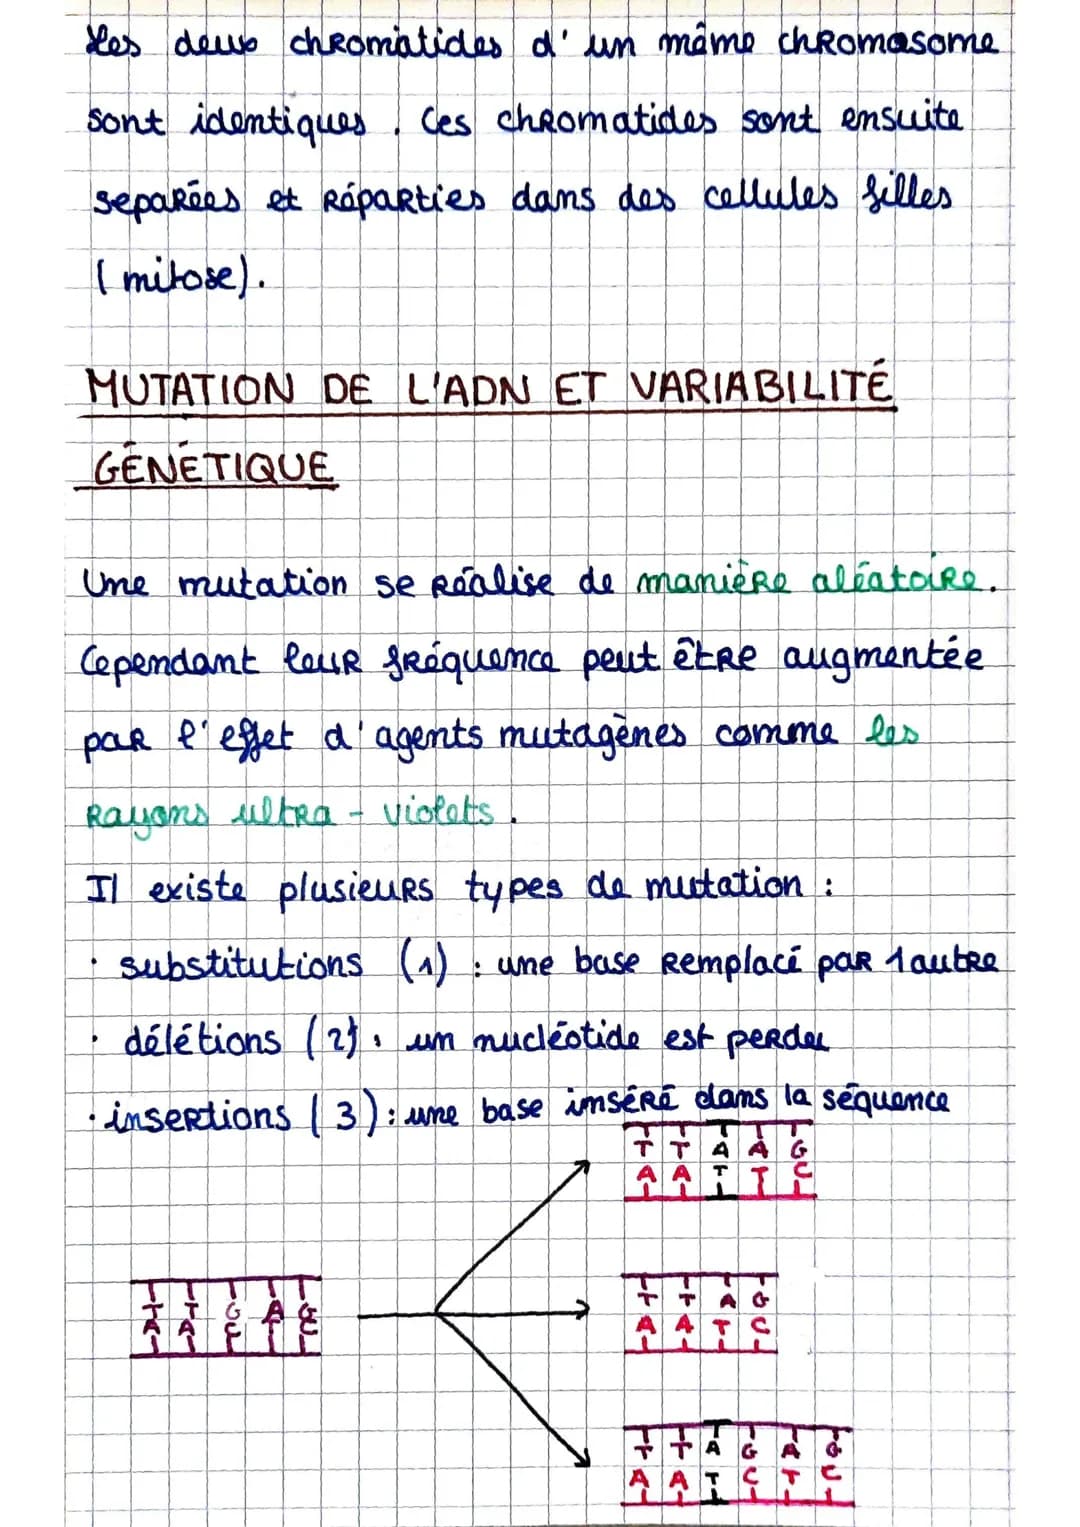 Les deux chromatides d'un même chromosome
sont identiques. Ces chromatides sont ensuite
separées et réparties dans des cellules filles
(mitose).
MUTATION DE L'ADN ET VARIABILITÉ
GÉNÉTIQUE
Une mutation se réalise de manière aléatoire.
Cependant leur fréquence peut être augmentée
par l'effet d'agents mutagènes comme les
Rayons ultra-violets.
Il existe plusieurs types de mutation :
· substitutions (1) : une base remplacé par 1 autre
· délétions (2) : un nucléotide est perdu
· insertions (3) : une base inséré dans la séquence
T T A A G
A A T T C
T T G A G
A A C T C
T T A G
A A T C
T T A G A G
A A T C T C